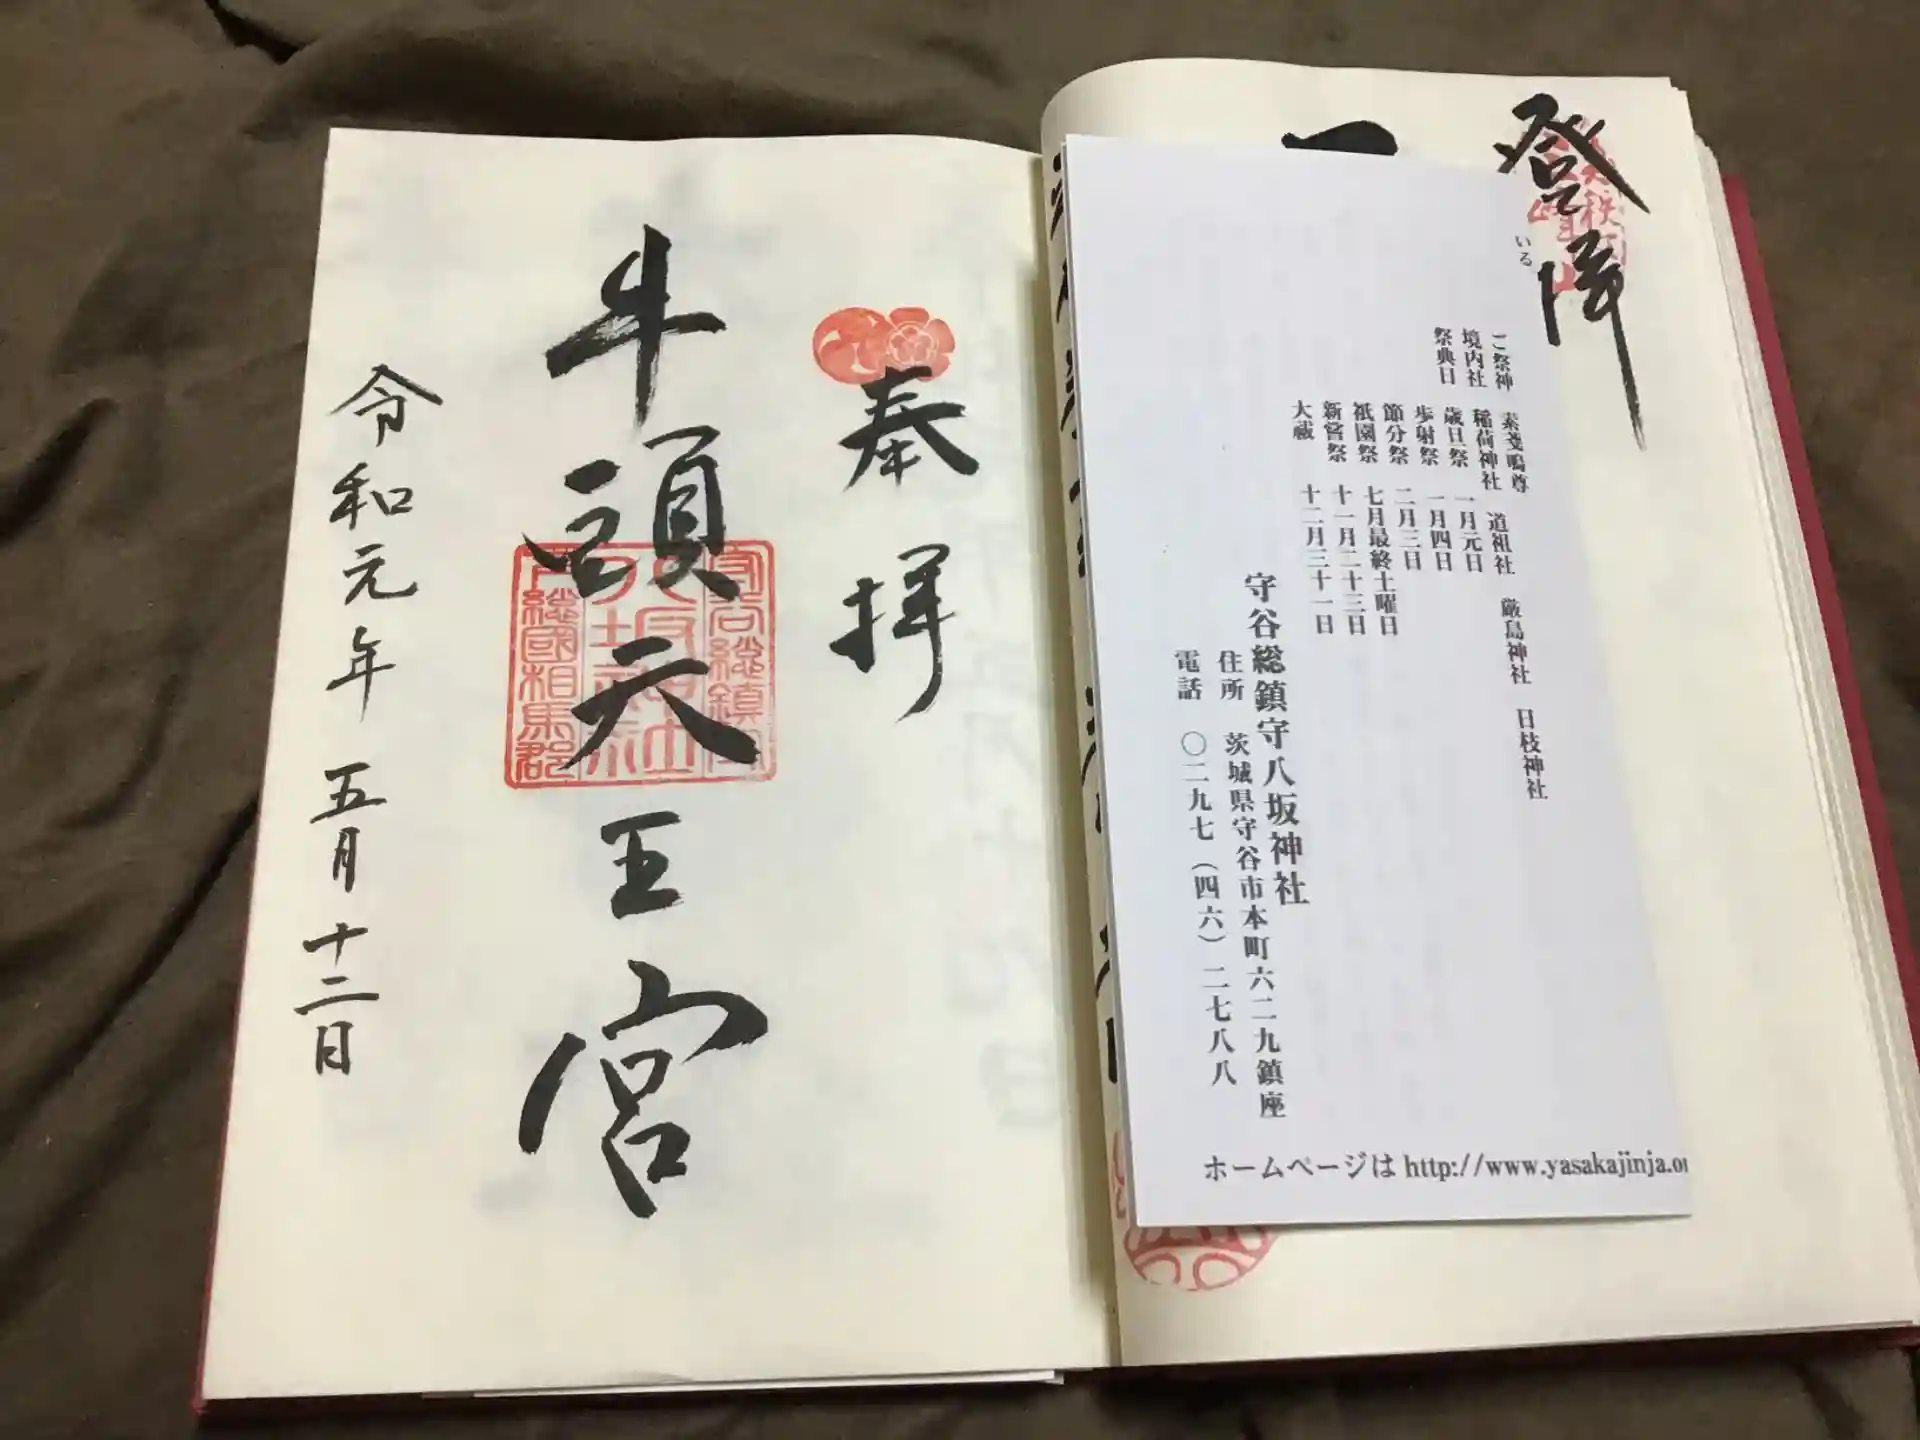 登障
一
いる
ご祭神 素戔嗚尊
境内社 稲荷神社 道祖社 厳島神社 日枝神社
祭典日 歳旦祭 一月元日
歩射祭 一月四日
節分祭 二月三日
祇園祭 七月最終土曜日
新嘗祭 十一月二十三日
大祓 十二月三十一日
守谷総鎮守八坂神社
住所 茨城県守谷市本町六二九鎮座
電話 〇二九七(四六)二七八八
ホームページは http://www.yasakajinja.or
奉拝
牛頭天王宮
守谷総鎮守
八坂神社
下総國相馬郡
令和元年五月十二日